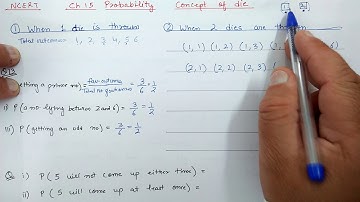 NCERT Ch 15 Probability Concept of die
① When 1 die is thrown
Total outcomes 1, 2, 3, 4, 5, 6
② When 2 dies are thrown
(1, 1) (1, 2) (1, 3)
(2, 1) (2, 2) (2, 3)
getting a prime no) = fav outcome / Total no of outcomes = 3/6 = 1/2
ii) P (a no lying between 2 and 6) = 3/6 = 1/2
iii) P (getting an odd no) = 3/6 = 1/2
Q2 i) P (5 will not come up either time) =
ii) P (5 will come up at least once) =